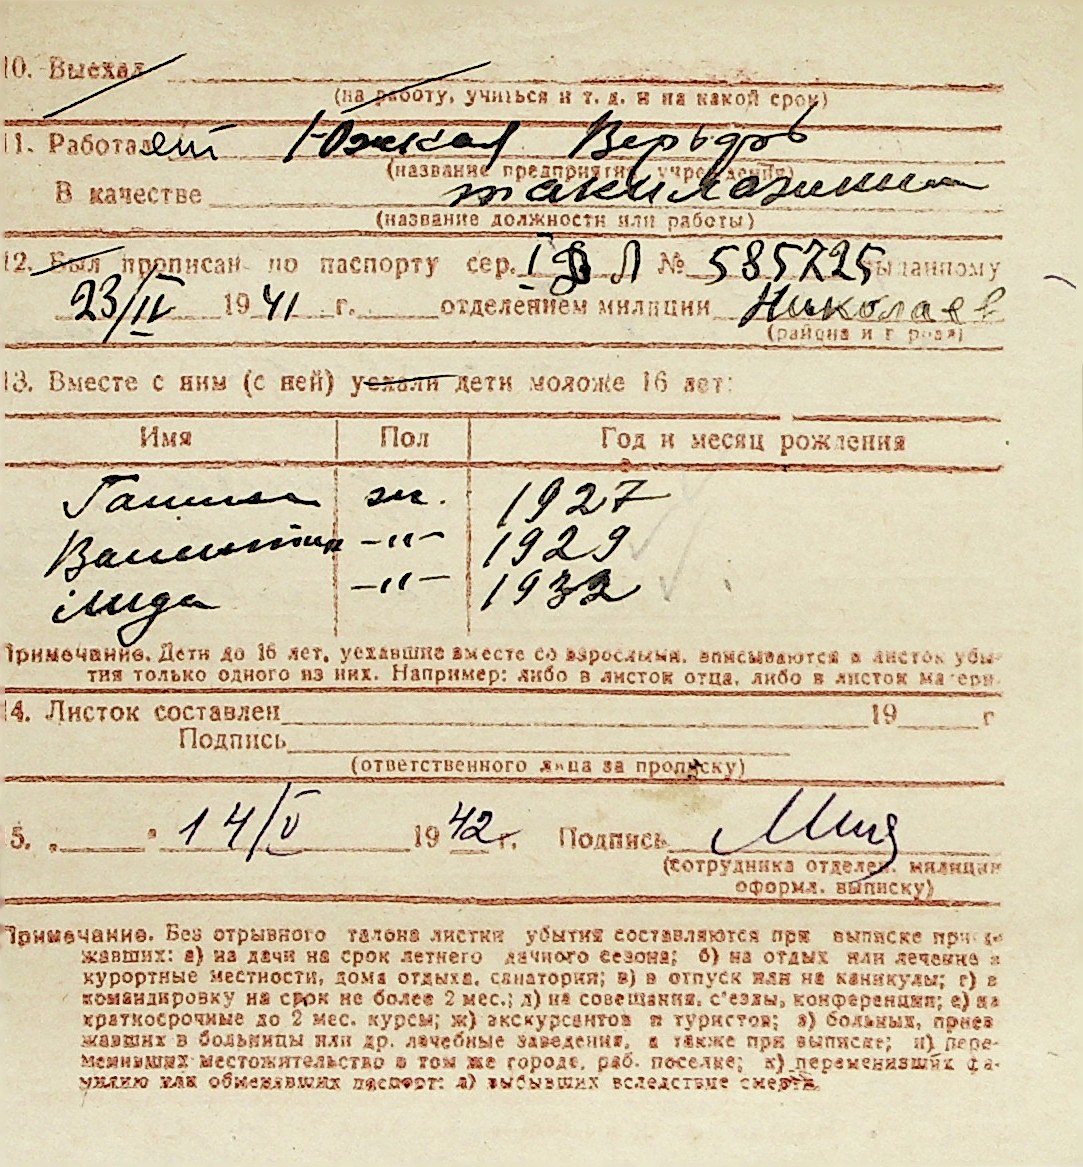 10. Выехал
(на работу, учиться и т. д. и на какой срок)
11. Работает Южная Верьфь
(название предприятия, учреждения)
В качестве
(название должности или работы)
12. Был прописан по паспорту сер. № 585725 выданному
23/IV 1941 г. отделением милиции Николаев
(района и г рода)
13. Вместе с ним (с ней) уехали дети моложе 16 лет:
Имя Пол Год и месяц рождения
Галина ж. 1927
Валентина -"- 1929
Лида -"- 1932
Примечание. Дети до 16 лет, уехавшие вместе со взрослыми, вписываются в листок убы-
тия только одного из них. Например: либо в листок отца, либо в листок матери
14. Листок составлен 19 г
Подпись
(ответственного лица за прописку)
5. „ " 14/V 1942 г. Подпись
(сотрудника отделен. милиции
оформл. выписку)
Примечание. Без отрывного талона листки убытия составляются при выписке приез-
жавших: а) на дачи на срок летнего дачного сезона; б) на отдых или лечение в
курортные местности, дома отдыха, санатории; в) в отпуск или на каникулы; г) в
командировку на срок не более 2 мес.; д) на совещания, с'езды, конференции; е) на
краткосрочные до 2 мес. курсы; ж) экскурсантов и туристов; з) больных, приез
жавших в больницы или др. лечебные заведения, а также при выписке; и) пере-
менивших местожительство в том же городе, раб. поселке; к) переменивших фа-
милию или обменявших паспорт: л) выбывших вследствие смерти.